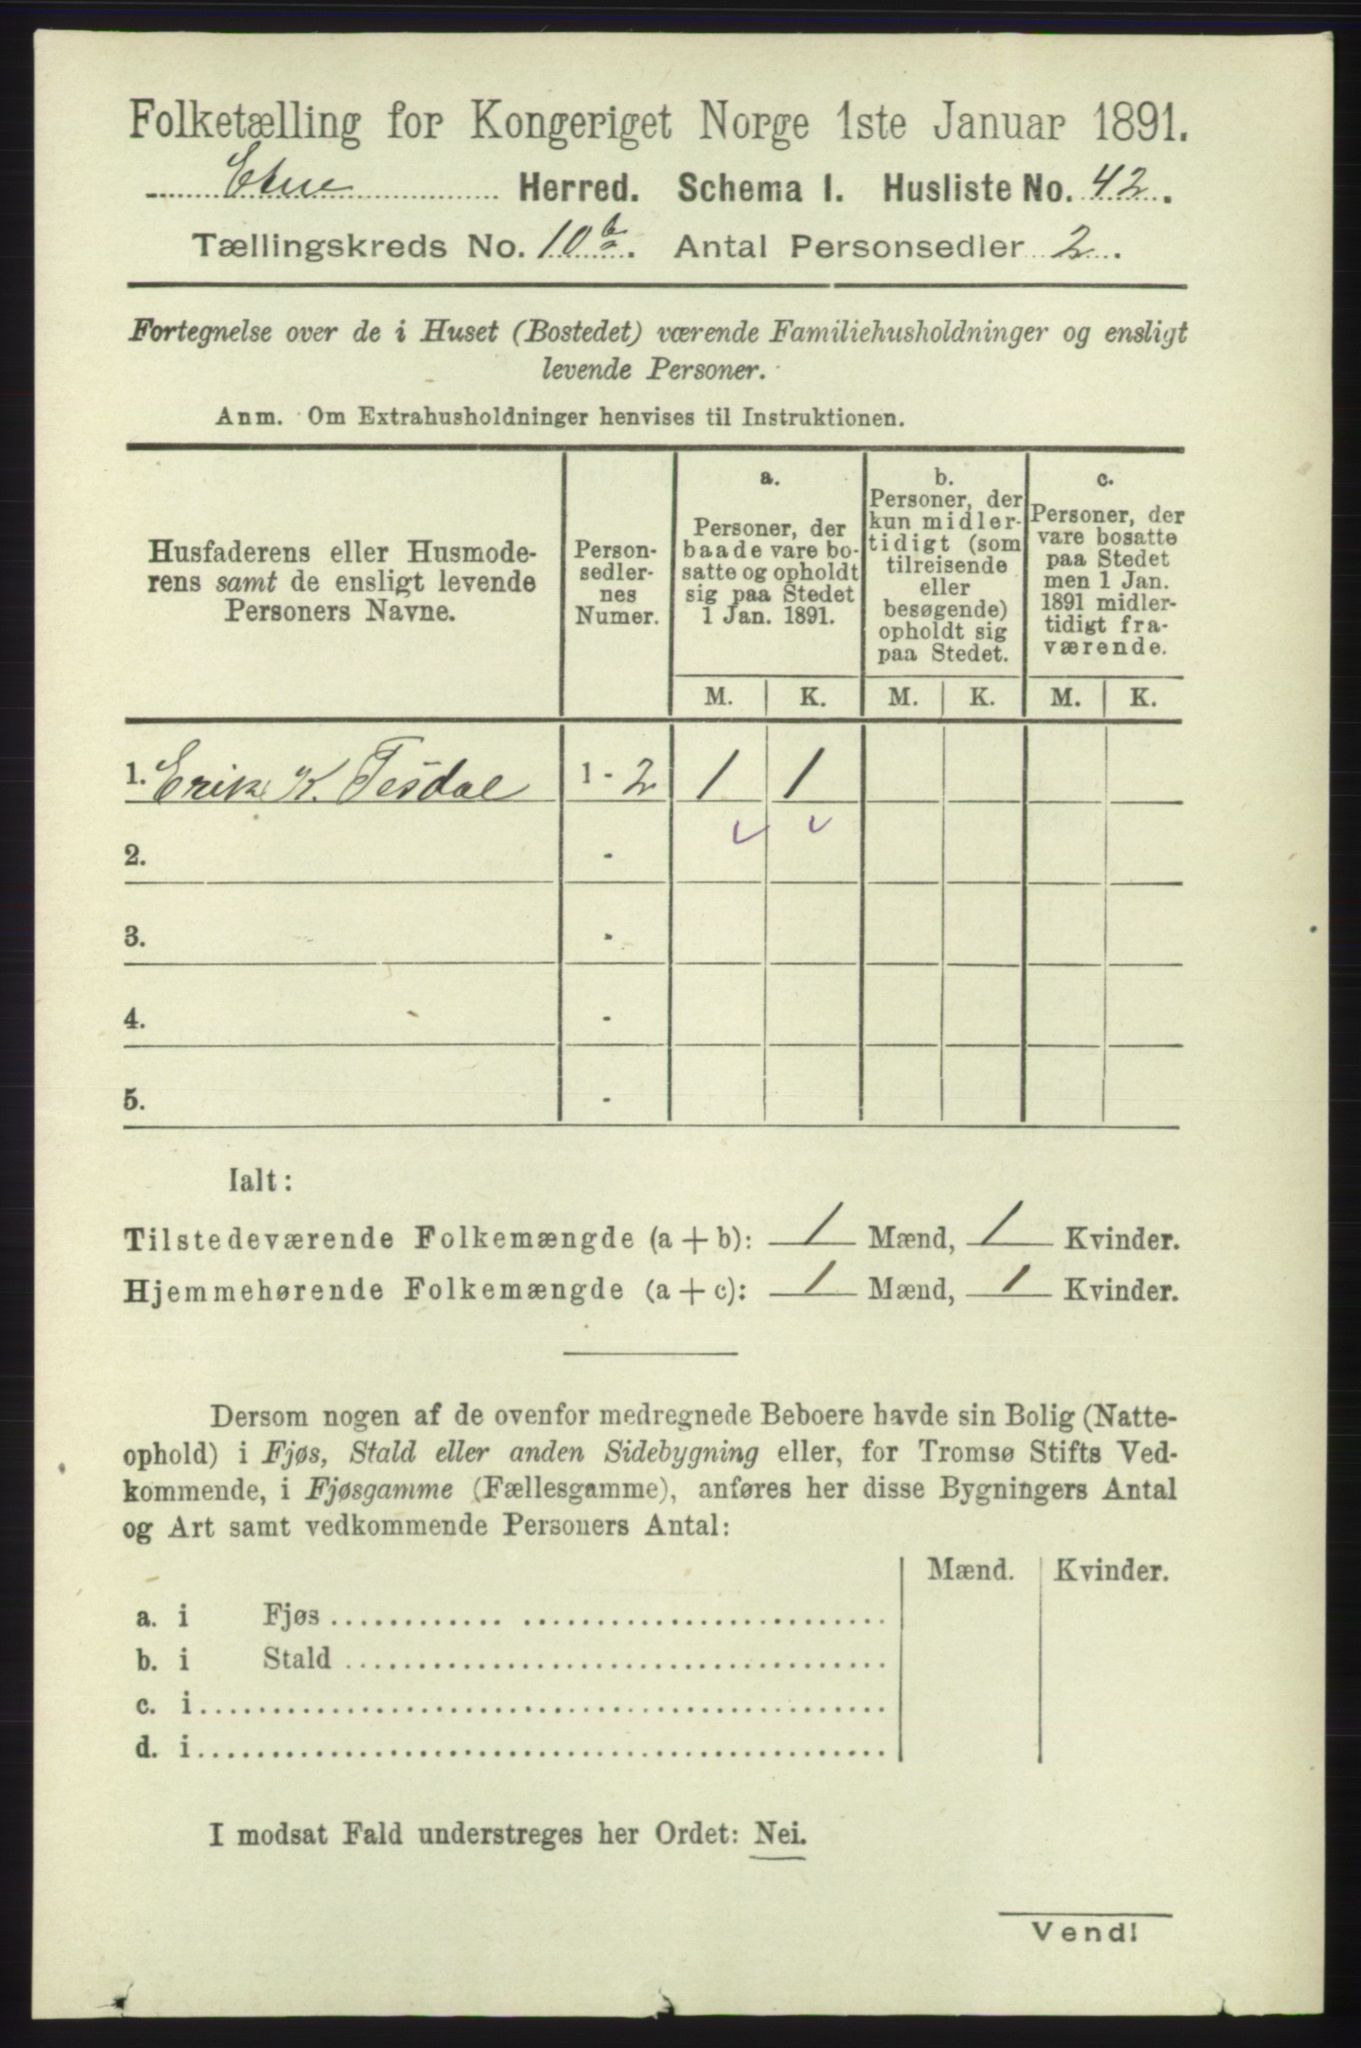 Folketælling for Kongeriget Norge 1ste Januar 1891.
Etne Herred. Schema I. Husliste No. 42.
Tællingskreds No. 10 b. Antal Personsedler 2.
Fortegnelse over de i Huset (Bostedet) værende Familiehusholdninger og ensligt
levende Personer.
Anm. Om Extrahusholdninger henvises til Instruktionen.
Husfaderens eller Husmode-
rens samt de ensligt levende
Personers Navne.
Person-
sedler-
nes
Numer.
a.
Personer, der
baade vare bo-
satte og opholdt
sig paa Stedet
1 Jan. 1891.
b.
Personer, der
kun midler-
tidigt (som
tilreisende
eller
besøgende)
opholdt sig
paa Stedet.
c.
Personer, der
vare bosatte
paa Stedet
men 1 Jan.
1891 midler-
tidigt fra-
værende.
M. K. M. K. M. K.
1. Erik K. Tesdal 1 - 2 1 1
2. -
3. -
4. -
5. -
Ialt:
Tilstedeværende Folkemængde (a + b): 1 Mænd, 1 Kvinder.
Hjemmehørende Folkemængde (a + c): 1 Mænd, 1 Kvinder.
Dersom nogen af de ovenfor medregnede Beboere havde sin Bolig (Natte-
ophold) i Fjøs, Stald eller anden Sidebygning eller, for Tromsø Stifts Ved-
kommende, i Fjøsgamme (Fællesgamme), anføres her disse Bygningers Antal
og Art samt vedkommende Personers Antal:
Mænd. Kvinder.
a. i Fjøs
b. i Stald
c. i
d. i
I modsat Fald understreges her Ordet: Nei.
Vend!